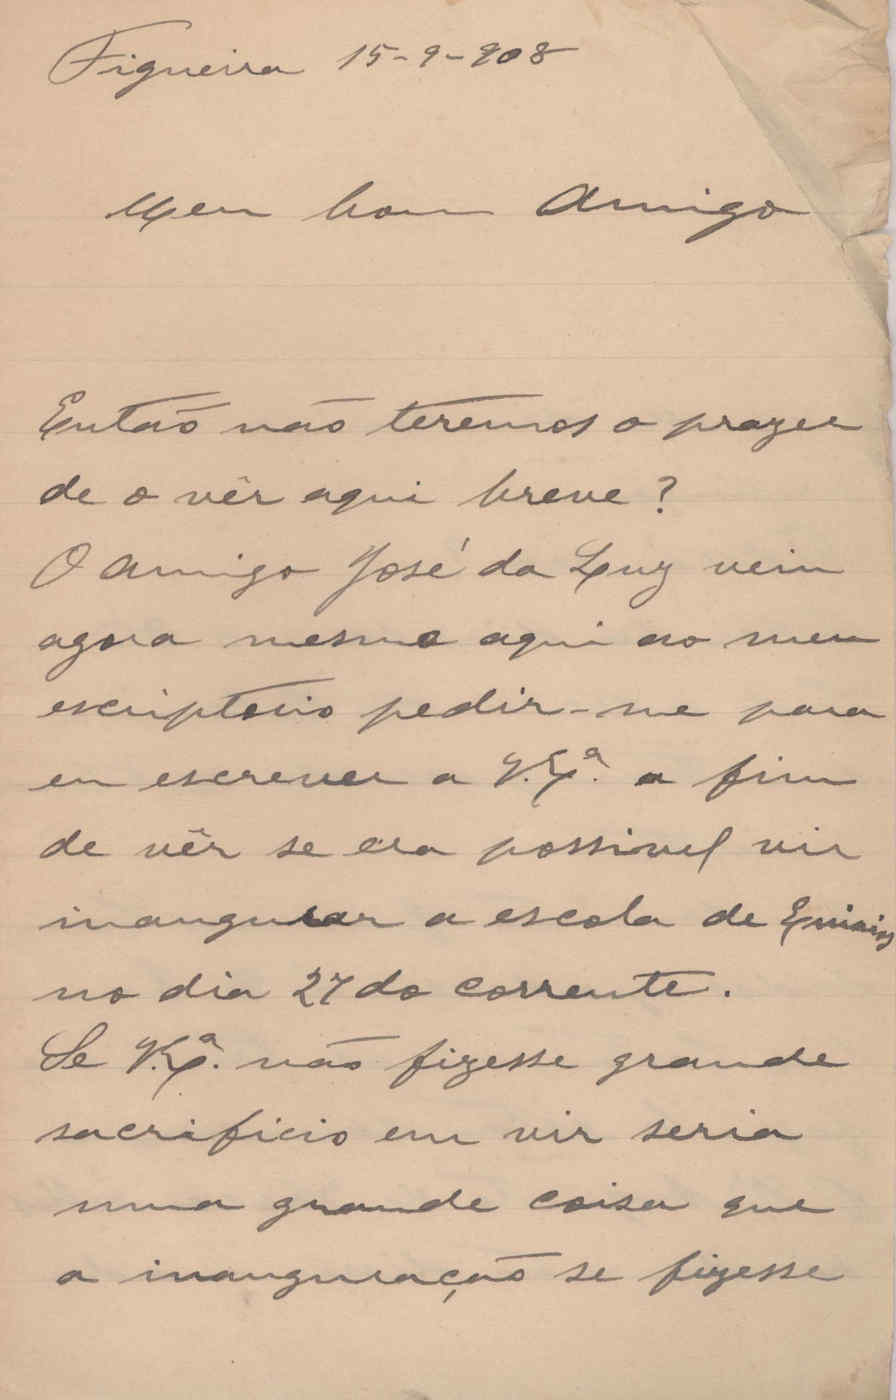 Figueira 15-9-908
Meu bom Amigo
Então não teremos o prazer
de o vêr aqui breve?
O Amigo José da Luz veio
agora mesmo aqui ao meu
escriptorio pedir-me para
eu escrever a V. Exª. a fim
de vêr se era possivel vir
inaugurar a escola de
no dia 27 do corrente.
Se V. Exª. não fizesse grande
sacrificio em vir seria
uma grande coisa que
a inauguração se fizesse